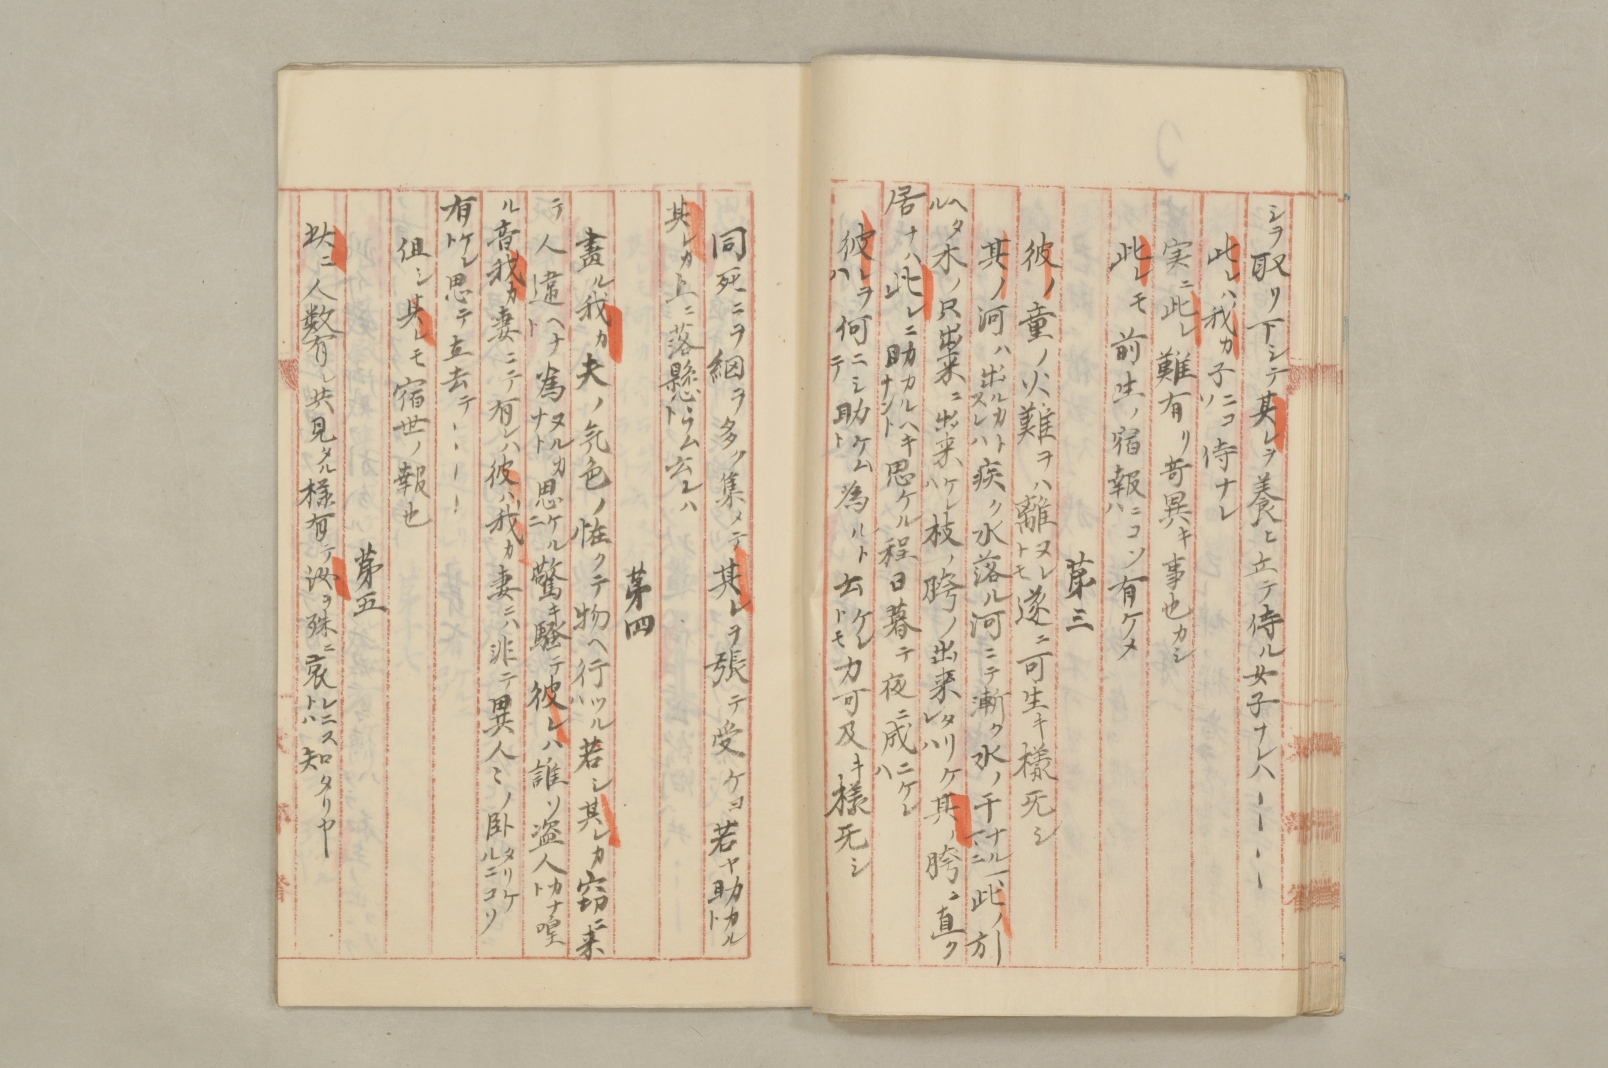 シヲ取リ下シテ其レヲ養ヒ立テ侍ル女子ナレハ——
此レハ我カ子ニコソ侍ナレ
実ニ此レ難有リ奇異キ事也カシ
此レモ前生ノ宿報ニコソハ有ケメ
第三
彼ノ童ノ火難ヲハ離ヌレトモ遂ニ可生キ様死シ
其ノ河ハ出ルカトスレハ疾ク水落ル河ニテ漸ク水ノ干ナルニ此ノ引
ヘタル木ノ只出来ニ出来ケレハ枝ノ胯ノ出来タリケレハ其ノ胯ニ直ク
居ナハ此レニ助カルヘキナント思ケル程日暮テ夜ニ成ニケレハ
彼レヲハ何ニシテ助ケムト為ルト云ケレトモ力可及キ様死シ
同死ニヲ網ヲ多ク集メテ其レヲ張テ受ケヨ若ヤ助カルト
其レカ上ニ落懸ラムト云ヘハ
第四
晝ル我カ夫ノ気色ノ怪クテ物ヘ行ツル若シ其レカ窃ニ来
テ人違ヘナト為ヌルナトカ思ケルニ驚キ騒テ彼レハ誰ソ盗人カナト喤
ル音我カ妻ニテ有レハ彼ハ我カ妻ニハ非テ異人ミノ臥タリケルニコソ
有ケレト思テ立去テ———
但シ其レモ宿世ノ報也
第五
此ニ人数有レ共見タル様有テ汝ヲ殊ニ哀レニストハ知タリヤ